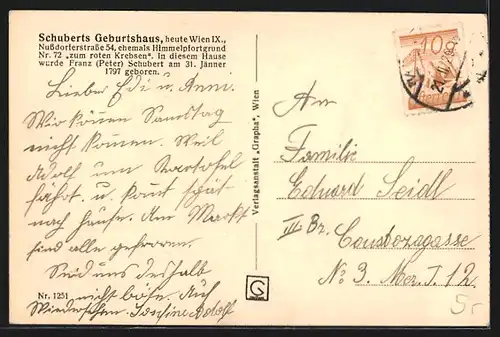 Schuberts Geburtshaus, heute Wien IX.,
Nußdorferstraße 54, ehemals Himmelpfortgrund
Nr. 72 „zum roten Krebsen“. In diesem Hause
wurde Franz (Peter) Schubert am 31. Jänner
1797 geboren.
Lieber Edi u. Anni.
Wir können Samstag
nicht kommen. Weil
Adolf um Kartofel
fährt. u. komt spät
nach Hause. Am Markt
sind alle gefroren.
Seid uns deshalb
nicht böse. Auf
Wiedersehen. Josefine Adolf
Nr. 1251
Verlagsanstalt „Grapha“, Wien
10
An
Familie
Eduard Seidl
III Bz. Custozagasse
No 3. T. 12